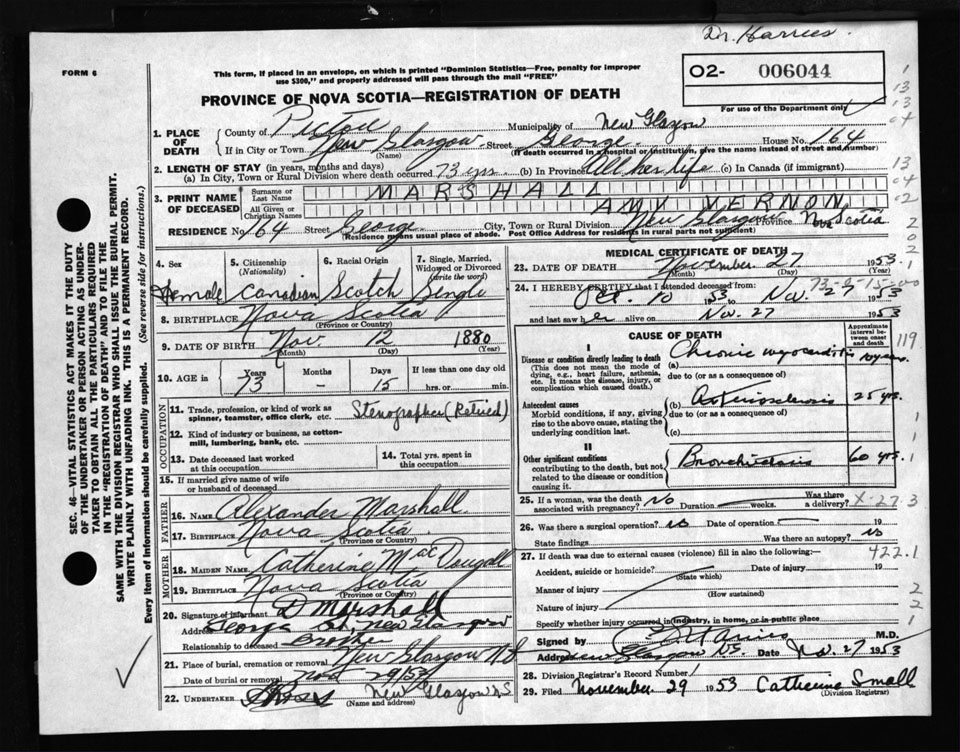 Dr. Harries
FORM 6
This form, if placed in an envelope, on which is printed "Dominion Statistics—Free, penalty for improper
use $300," and properly addressed will pass through the mail "FREE"
O2- 006044
For use of the Department only
PROVINCE OF NOVA SCOTIA—REGISTRATION OF DEATH
1. PLACE OF DEATH
County of Pictou Municipality of New Glasgow
If in City or Town New Glasgow Street George House No. 164
(Name) (If death occurred in a hospital or institution, give the name instead of street and number)
2. LENGTH OF STAY (in years, months and days)
(a) In City, Town or Rural Division where death occurred 73 yrs (b) In Province All her life (c) In Canada (if immigrant)
3. PRINT NAME OF DECEASED
Surname or Last Name MARSHALL
All Given or Christian Names AMY VERNON
RESIDENCE No. 164 Street George City, Town or Rural Division New Glasgow Province Nova Scotia
(Residence means usual place of abode. Post Office Address for residents in rural parts not sufficient)
4. Sex
Female
5. Citizenship (Nationality)
Canadian
6. Racial Origin
Scotch
7. Single, Married, Widowed or Divorced (write the word)
Single
8. BIRTHPLACE Nova Scotia
(Province or Country)
9. DATE OF BIRTH Nov 12 1880
(Month) (Day) (Year)
10. AGE in Years Months Days If less than one day old
73 - 15 hrs. or min.
OCCUPATION
11. Trade, profession, or kind of work as spinner, teamster, office clerk, etc. Stenographer (Retired)
12. Kind of industry or business, as cotton-mill, lumbering, bank, etc.
13. Date deceased last worked at this occupation
14. Total yrs. spent in this occupation
15. If married give name of wife or husband of deceased
FATHER
16. NAME Alexander Marshall
17. BIRTHPLACE Nova Scotia
(Province or Country)
MOTHER
18. MAIDEN NAME Catherine MacDougall
19. BIRTHPLACE Nova Scotia
(Province or Country)
20. Signature of informant D Marshall
Address George St. New Glasgow
Relationship to deceased Brother
21. Place of burial, cremation or removal New Glasgow N S
Date of burial or removal Nov 29/53
22. UNDERTAKER New Glasgow N S
(Name and address)
MEDICAL CERTIFICATE OF DEATH
23. DATE OF DEATH November 27 1953
(Month) (Day) (Year)
24. I HEREBY CERTIFY that I attended deceased from:
Oct. 10 1953 to Nov. 27 1953
and last saw her alive on Nov. 27 1953
CAUSE OF DEATH
Approximate interval between onset and death
I
Disease or condition directly leading to death
(This does not mean the mode of dying, e.g., heart failure, asthenia, etc. It means the disease, injury, or complication which caused death.)
(a) Chronic myocarditis 10 years
due to (or as a consequence of)
Antecedent causes
Morbid conditions, if any, giving rise to the above cause, stating the underlying condition last.
(b) Arteriosclerosis 25 yrs.
due to (or as a consequence of)
(c)
II
Other significant conditions
contributing to the death, but not related to the disease or condition causing it.
Bronchiectasis 60 yrs.
25. If a woman, was the death associated with pregnancy? No Duration weeks. Was there a delivery?
X-27.3
26. Was there a surgical operation? No Date of operation 19
State findings Was there an autopsy? No
27. If death was due to external causes (violence) fill in also the following:—
422.1
Accident, suicide or homicide? Date of injury 19
(State which)
Manner of injury
(How sustained)
Nature of injury
Specify whether injury occurred in industry, in home, or in public place
Signed by M.D.
Address New Glasgow N.S. Date Nov. 27 1953
28. Division Registrar's Record Number
29. Filed November 29 1953 Catherine Small
(Division Registrar)
SEC. 46—VITAL STATISTICS ACT MAKES IT THE DUTY
OF THE UNDERTAKER OR PERSON ACTING AS UNDER-
TAKER TO OBTAIN ALL THE PARTICULARS REQUIRED
IN THE "REGISTRATION OF DEATH" AND TO FILE THE
SAME WITH THE DIVISION REGISTRAR WHO SHALL ISSUE THE BURIAL PERMIT.
WRITE PLAINLY WITH UNFADING INK. THIS IS A PERMANENT RECORD.
Every item of information should be carefully supplied. (See reverse side for instructions.)
119